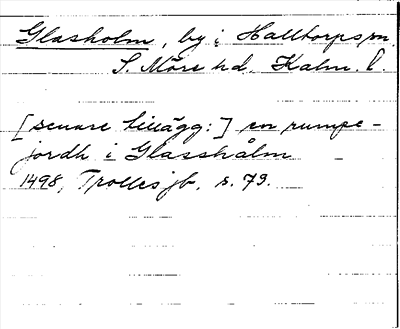 Glasholm, by i Halltorps sn,
S. Möre hd, Kalm. l.
[senare tillägg:] en rumpe-
jordh i Glasshålm
1498, Trolles jb, s. 79.